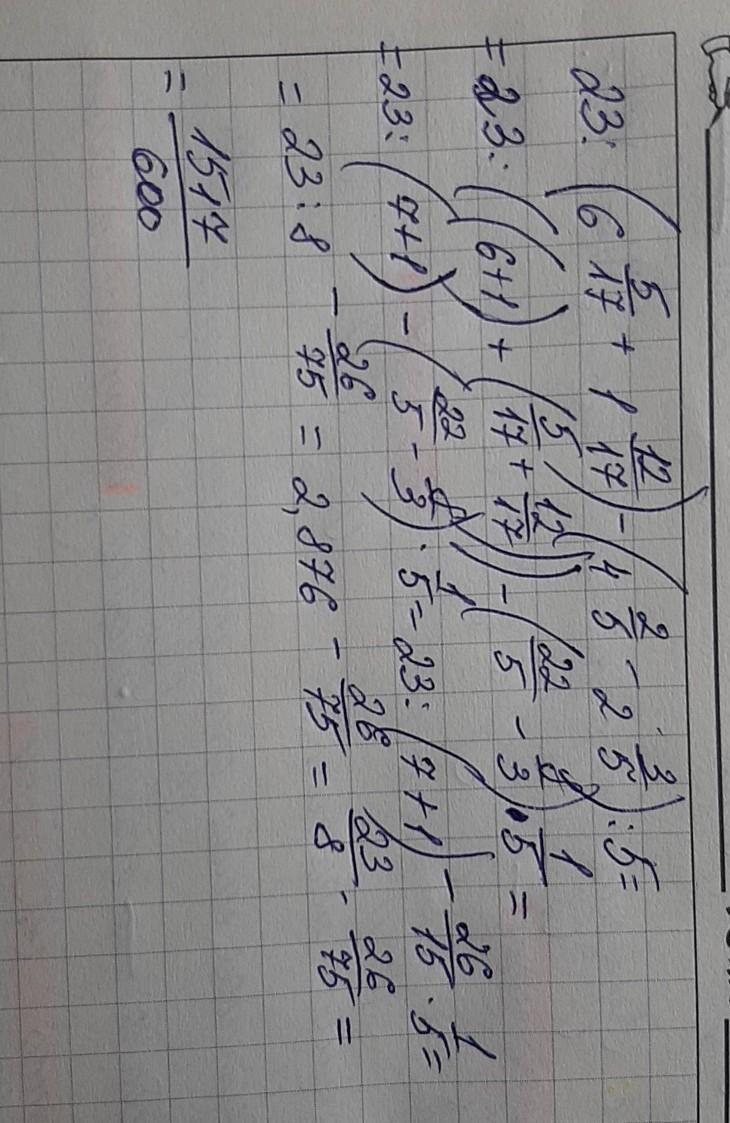 23 : (6 5/17 + 1 12/17) - (4 2/5 - 2 3/5) : 5 =
= 23 : ((6+1) + (5/17 + 12/17)) - (22/5 - 8/3) · 1/5 =
= 23 : (7+1) - (22/5 - 8/3) · 1/5 = 23 : (7+1) - 26/15 · 1/5 =
= 23 : 8 - 26/75 = 2,876 - 26/75 = 23/8 - 26/75 =
= 1517/600